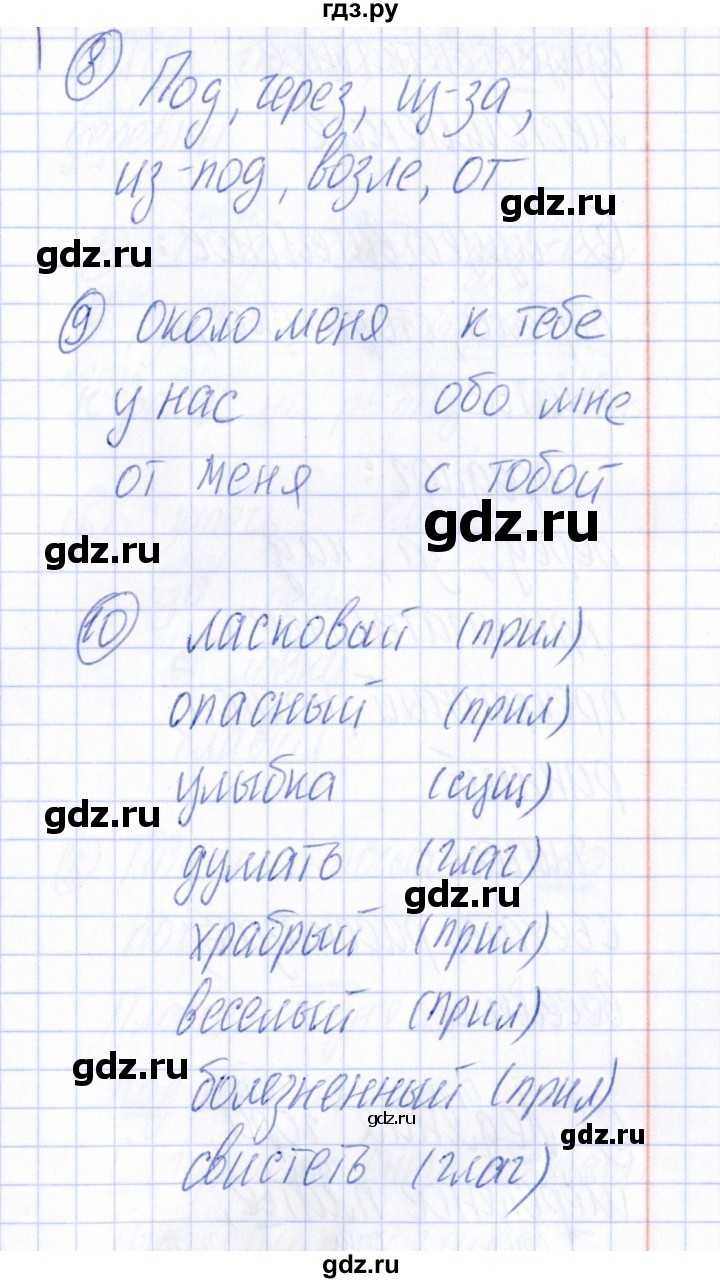 гдз.ру
8 Под, через, из-за,
из-под, возле, от
gdz.ru
gdz.ru
9 около меня к тебе
у нас обо мне
от меня с тобой
gdz.ru
gdz.ru
10 ласковый (прил)
опасный (прил)
улыбка (сущ)
gdz.ru
думать (глаг)
gdz.ru
храбрый (прил)
веселый (прил)
gdz.ru
болезненный (прил)
gdz.ru
gdz.ru
свистеть (глаг)
gdz.ru